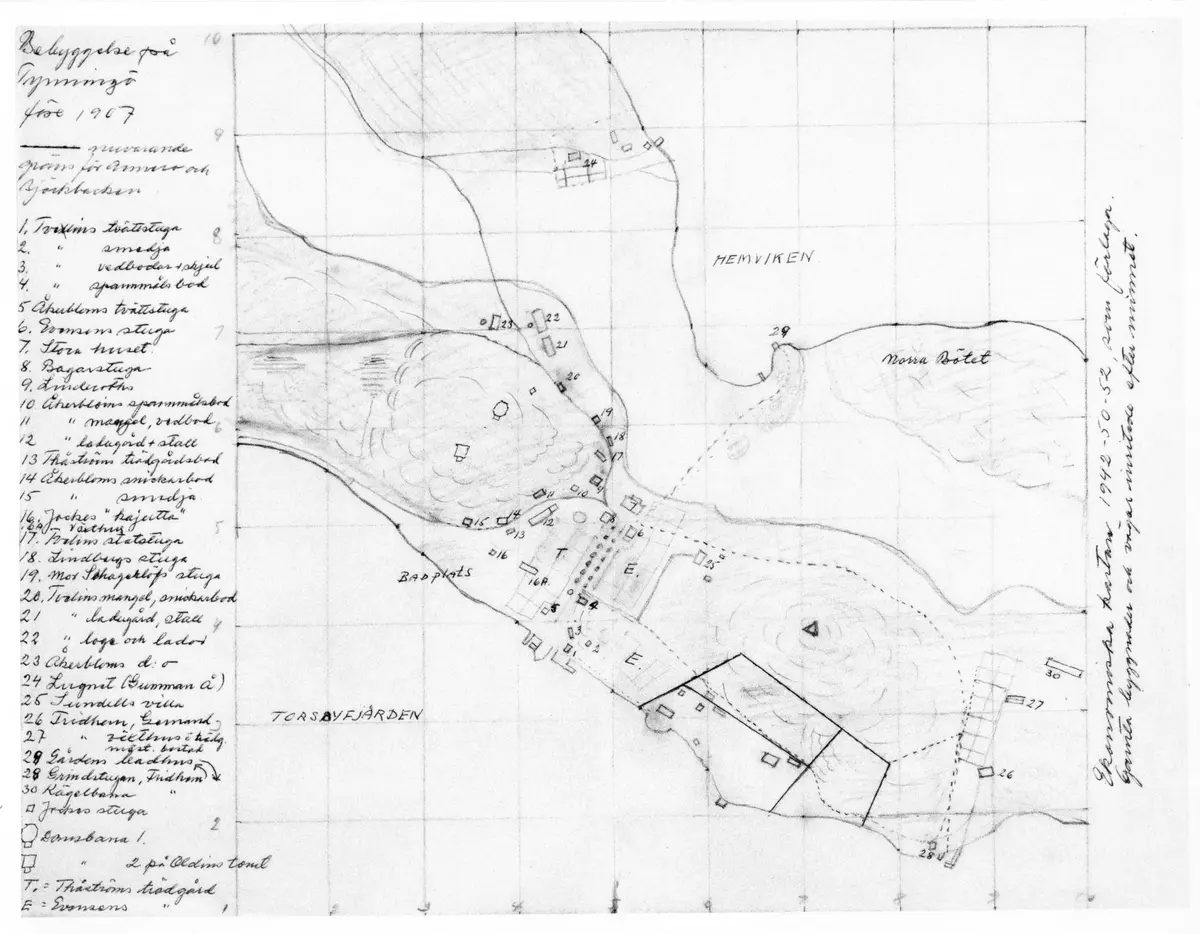 Bebyggelse på
Tynningö
före 1907
nuvarande
gräns för Annero och
Björkbacken
1. Tvolins tvättstuga
2. " smedja
3. " vedbodar + skjul
4. " spannmålsbod
5 Åkerbloms tvättstuga
6. Evonsens stuga
7. Stora huset.
8. Bagarstuga
9. Linderoths
10. Åkerbloms spannmålsbod
11 " mangel, vedbod
12 " ladugård + stall
13 Thåströms trädgårdsbod
14 Åkerbloms snickarbod
15 " smedja
16. Jockes "kajutta"
16A Växthus
17. Tvolins statstuga
18. Lindbergs stuga
19. Mor Skageklöfs stuga
20. Tvolins mangel, snickarbod
21 " ladugård, stall
22 " loge och lador
23 Åkerbloms d:o
24 Lugnet (Gumman Å)
25 Sundells villa
26 Fridhem,
27 " växthus + trädg.
mäst. bostad
29 Gårdens
28 Grindstugan, Fridhem
30 Kägelbana "
Jockes stuga
Dansbana 1.
" 2 på Oldins tomt
T. = Thåströms trädgård
E = Evonsens "
10
9
8
7
6
5
4
2
1
24
HEMVIKEN
29
Norra Bötet
23
22
21
20
19
18
17
9
11
10
12
14
15
13
16
7
8
6
T.
E.
25
16A.
BADPLATS
5
4
3
2
1
E
TORSBYFJÄRDEN
30
27
26
28
Ekonomiska kartan 1942-50-52, som förlaga.
Gamla byggnader och vägar inritade efter minnet.